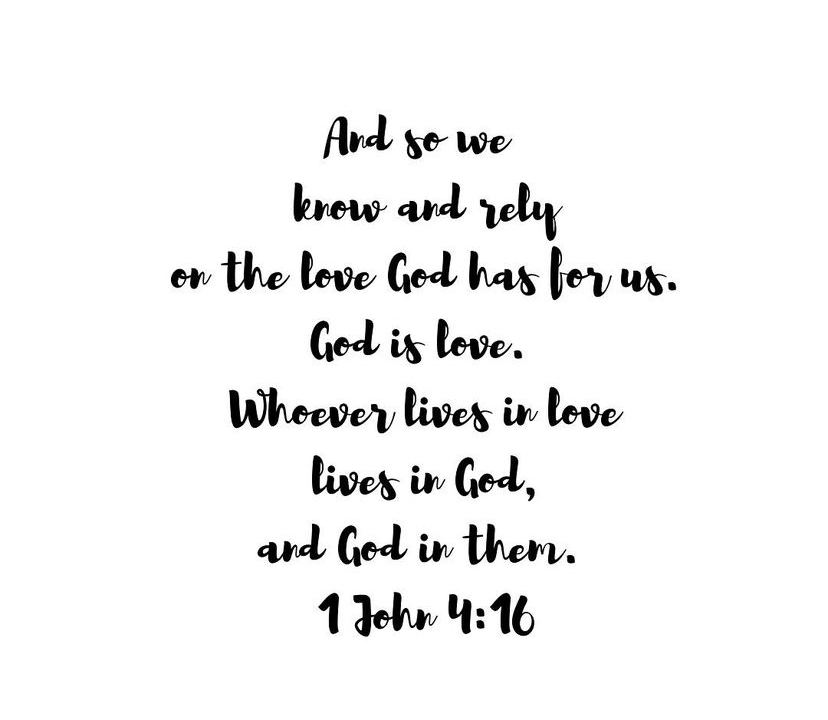 And so we
know and rely
on the love God has for us.
God is love.
Whoever lives in love
lives in God,
and God in them.
1 John 4:16